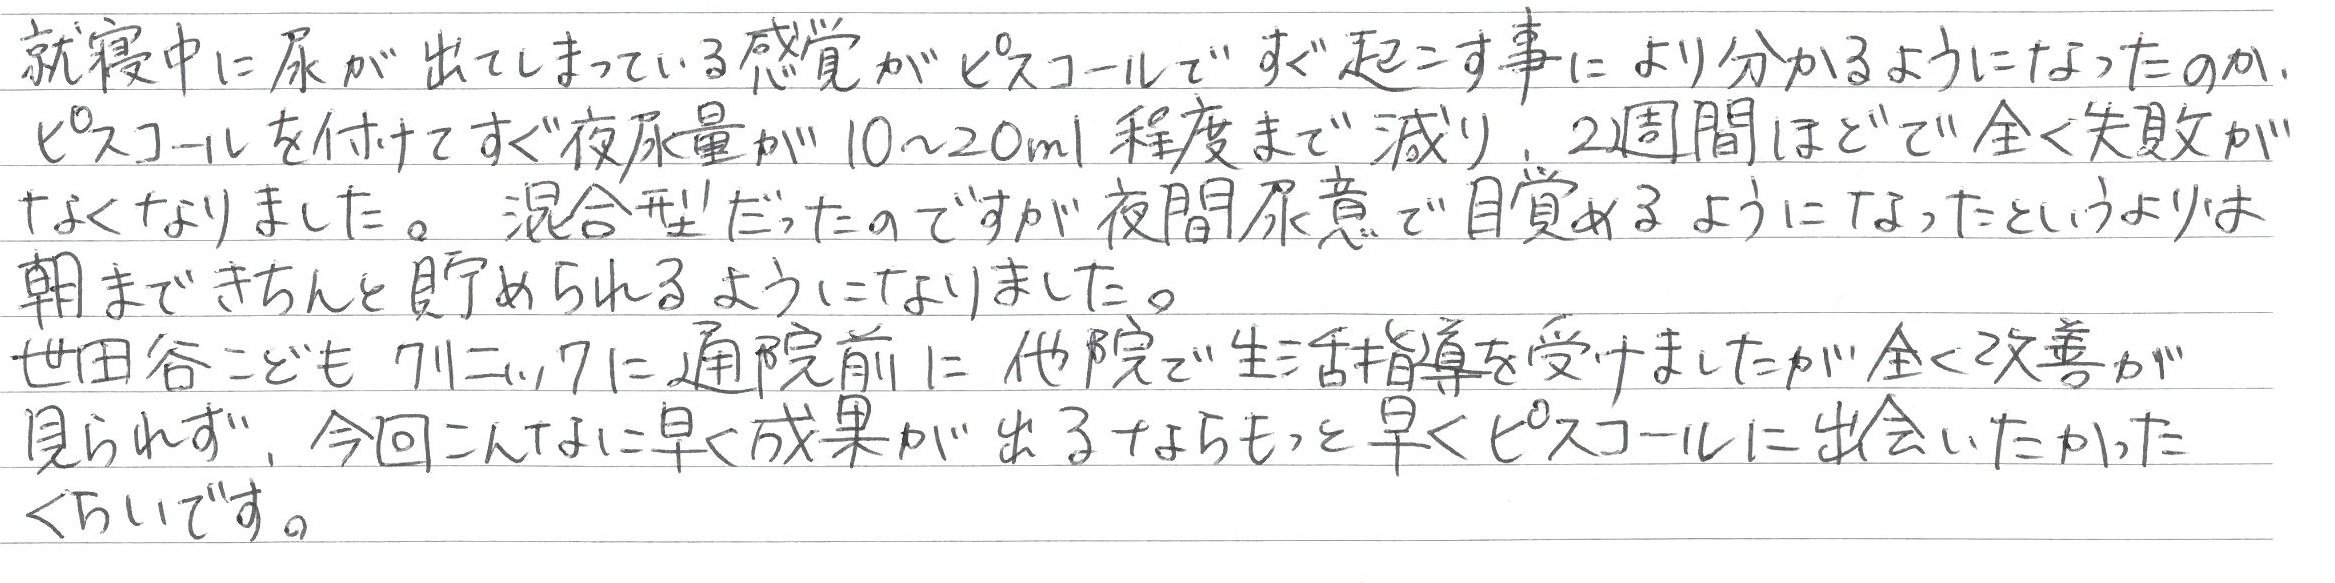 就寝中に尿が出てしまっている感覚がピスコールですぐ起こす事により分かるようになったのか、
ピスコールを付けてすぐ夜尿量が10～20ml程度まで減り、2週間ほどで全く失敗が
なくなりました。混合型だったのですが夜間尿意で目覚めるようになったというよりは
朝まできちんと貯められるようになりました。
世田谷こどもクリニックに通院前に他院で生活指導を受けましたが全く改善が
見られず、今回こんなに早く成果が出るならもっと早くピスコールに出会いたかった
くらいです。